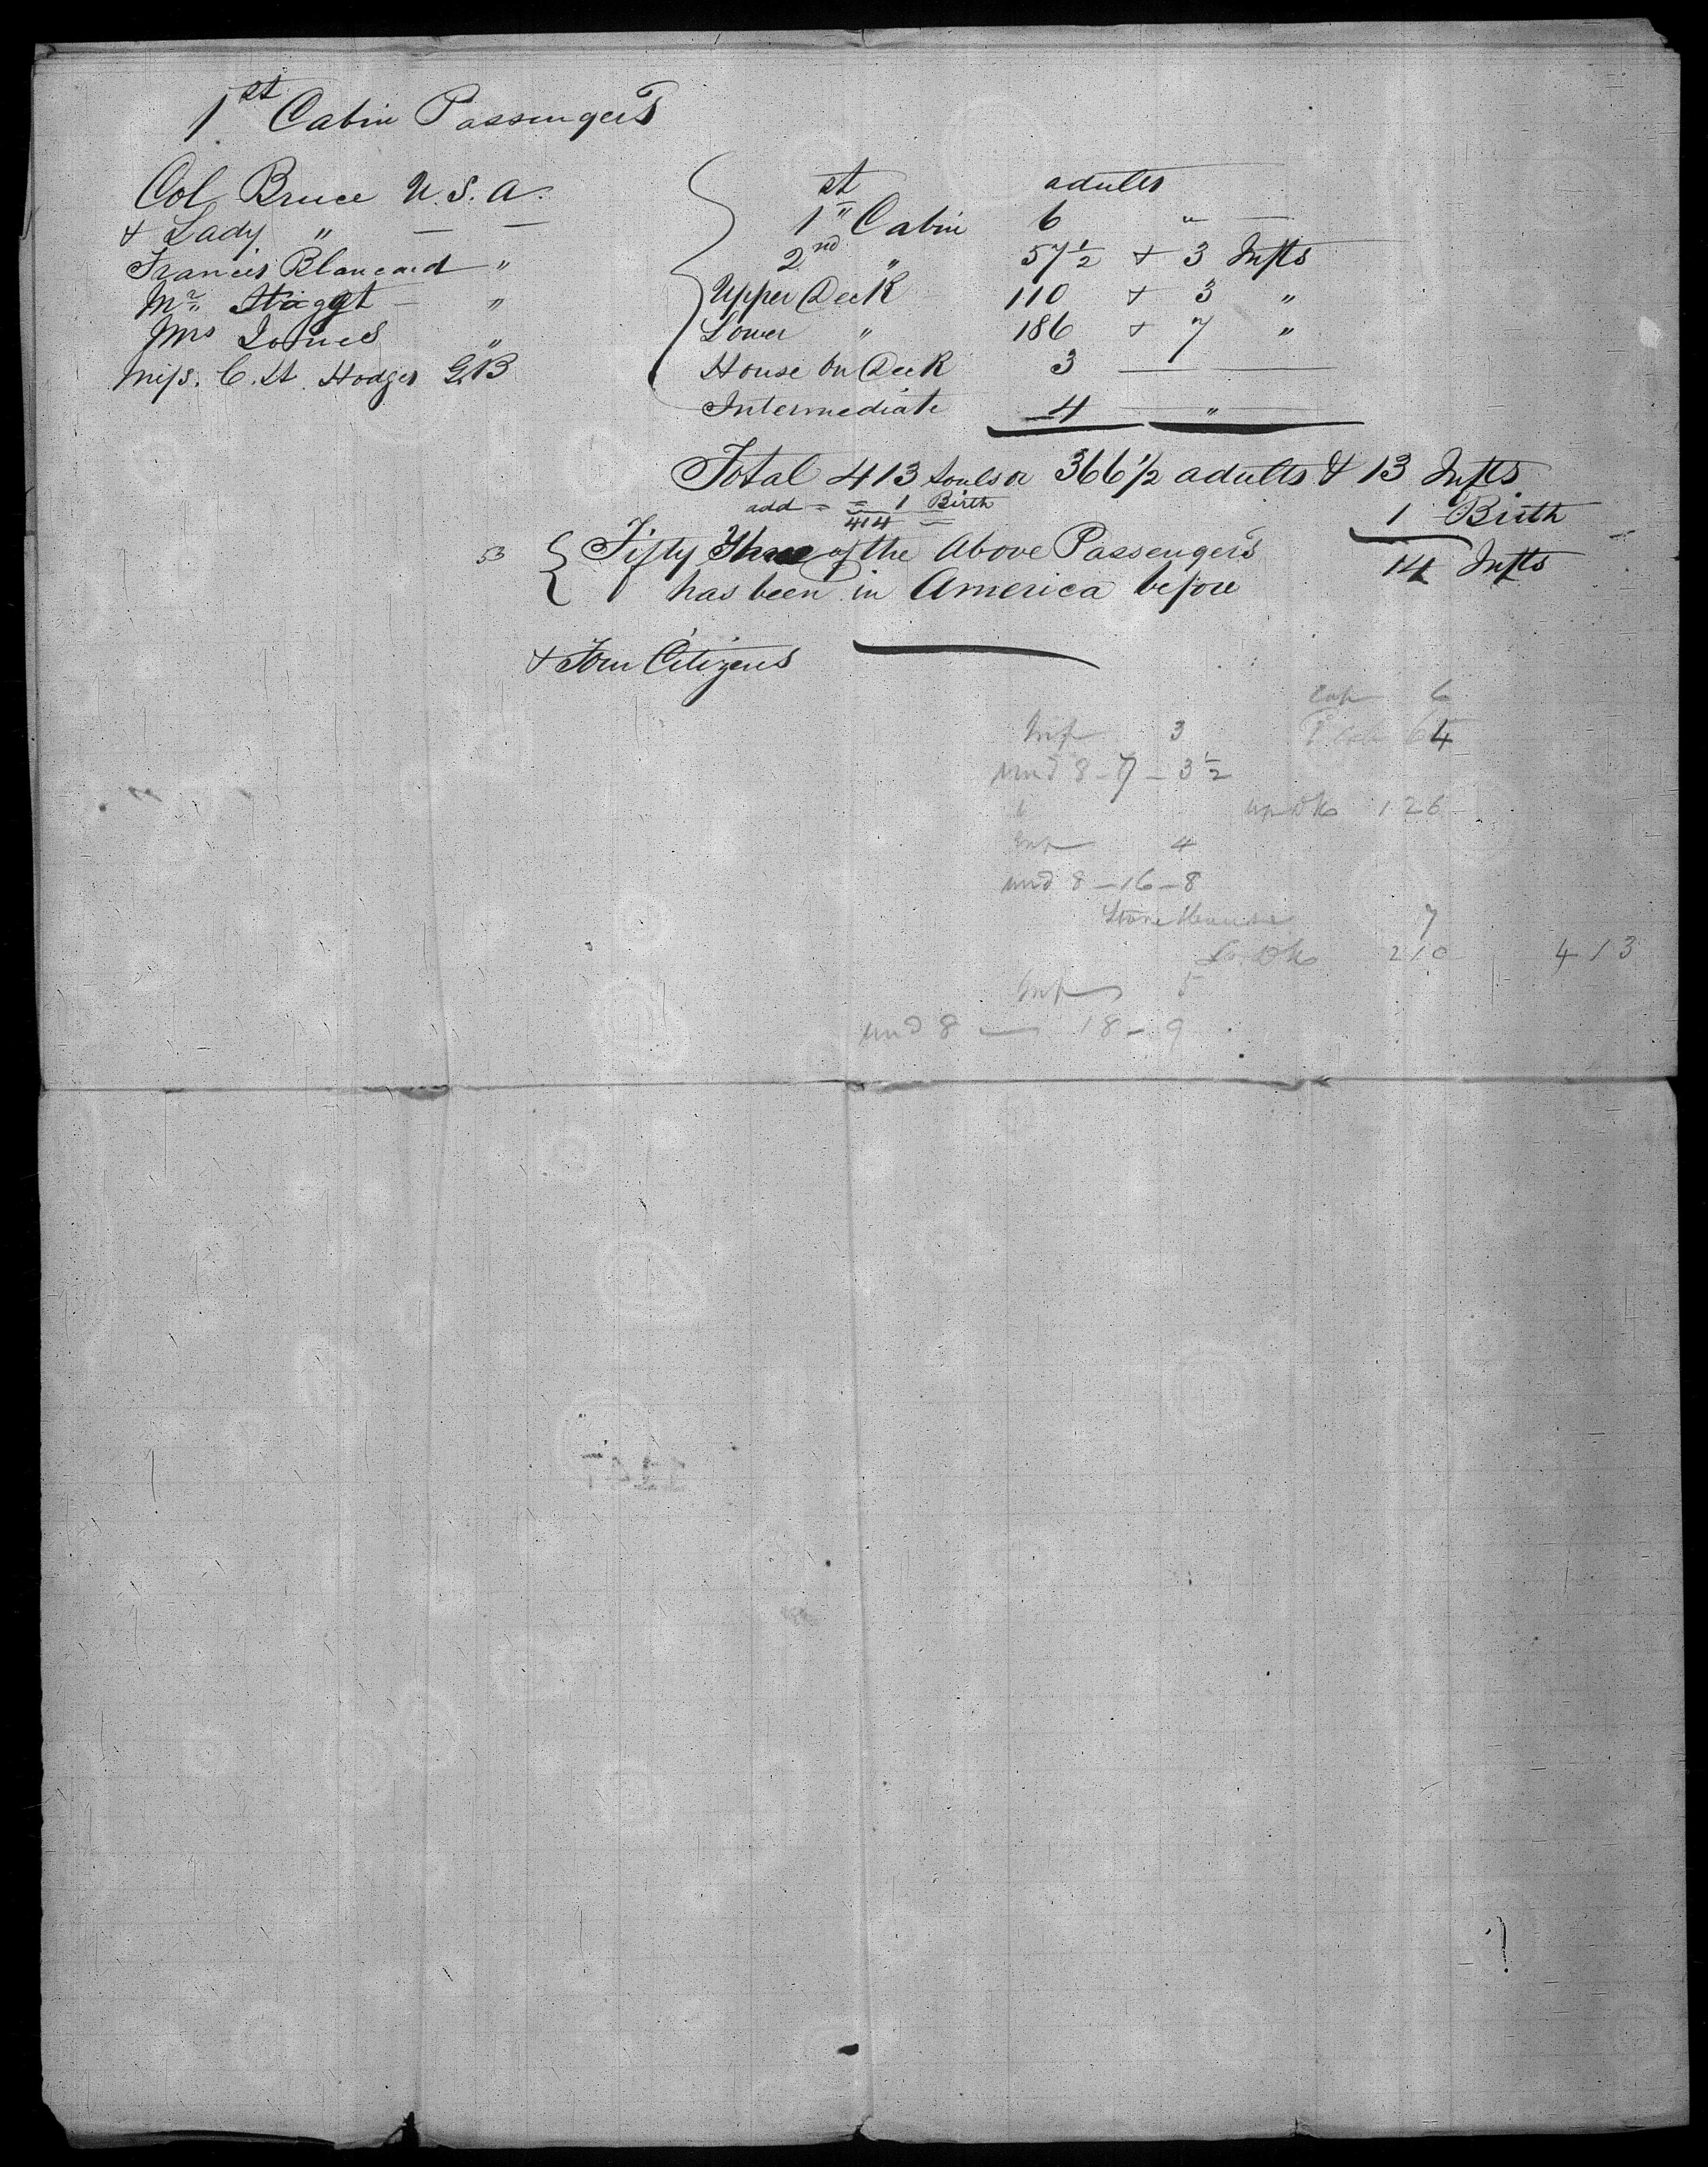 1st Cabin Passengers
Col Bruce U.S.A.
& Lady " — —
Francis Blancard "
Mr Staggt — "
Mrs Jones "
Miss. C. St. Hodges GB
adults
1st Cabin 6 " —
2nd " 57 1/2 + 3 Infts
Upper Deck 110 + 3 "
Lower " 186 + 7 "
House on Deck 3 —
Intermediate 4 — " —
Total 413 Souls or 366 1/2 adults & 13 Infts
add = = 1 Birth
414 =
1 Birth
14 Infts
53 { Fifty Three of the Above Passengers
has been in America before
& Four Citizens
6
Inf 3 64
und 8 - 7 - 3 1/2
up Dk 126
Inf 4
und 8 - 16 - 8
7
Lo. Dk 210 413
Inf 5
und 8 — 18 - 9